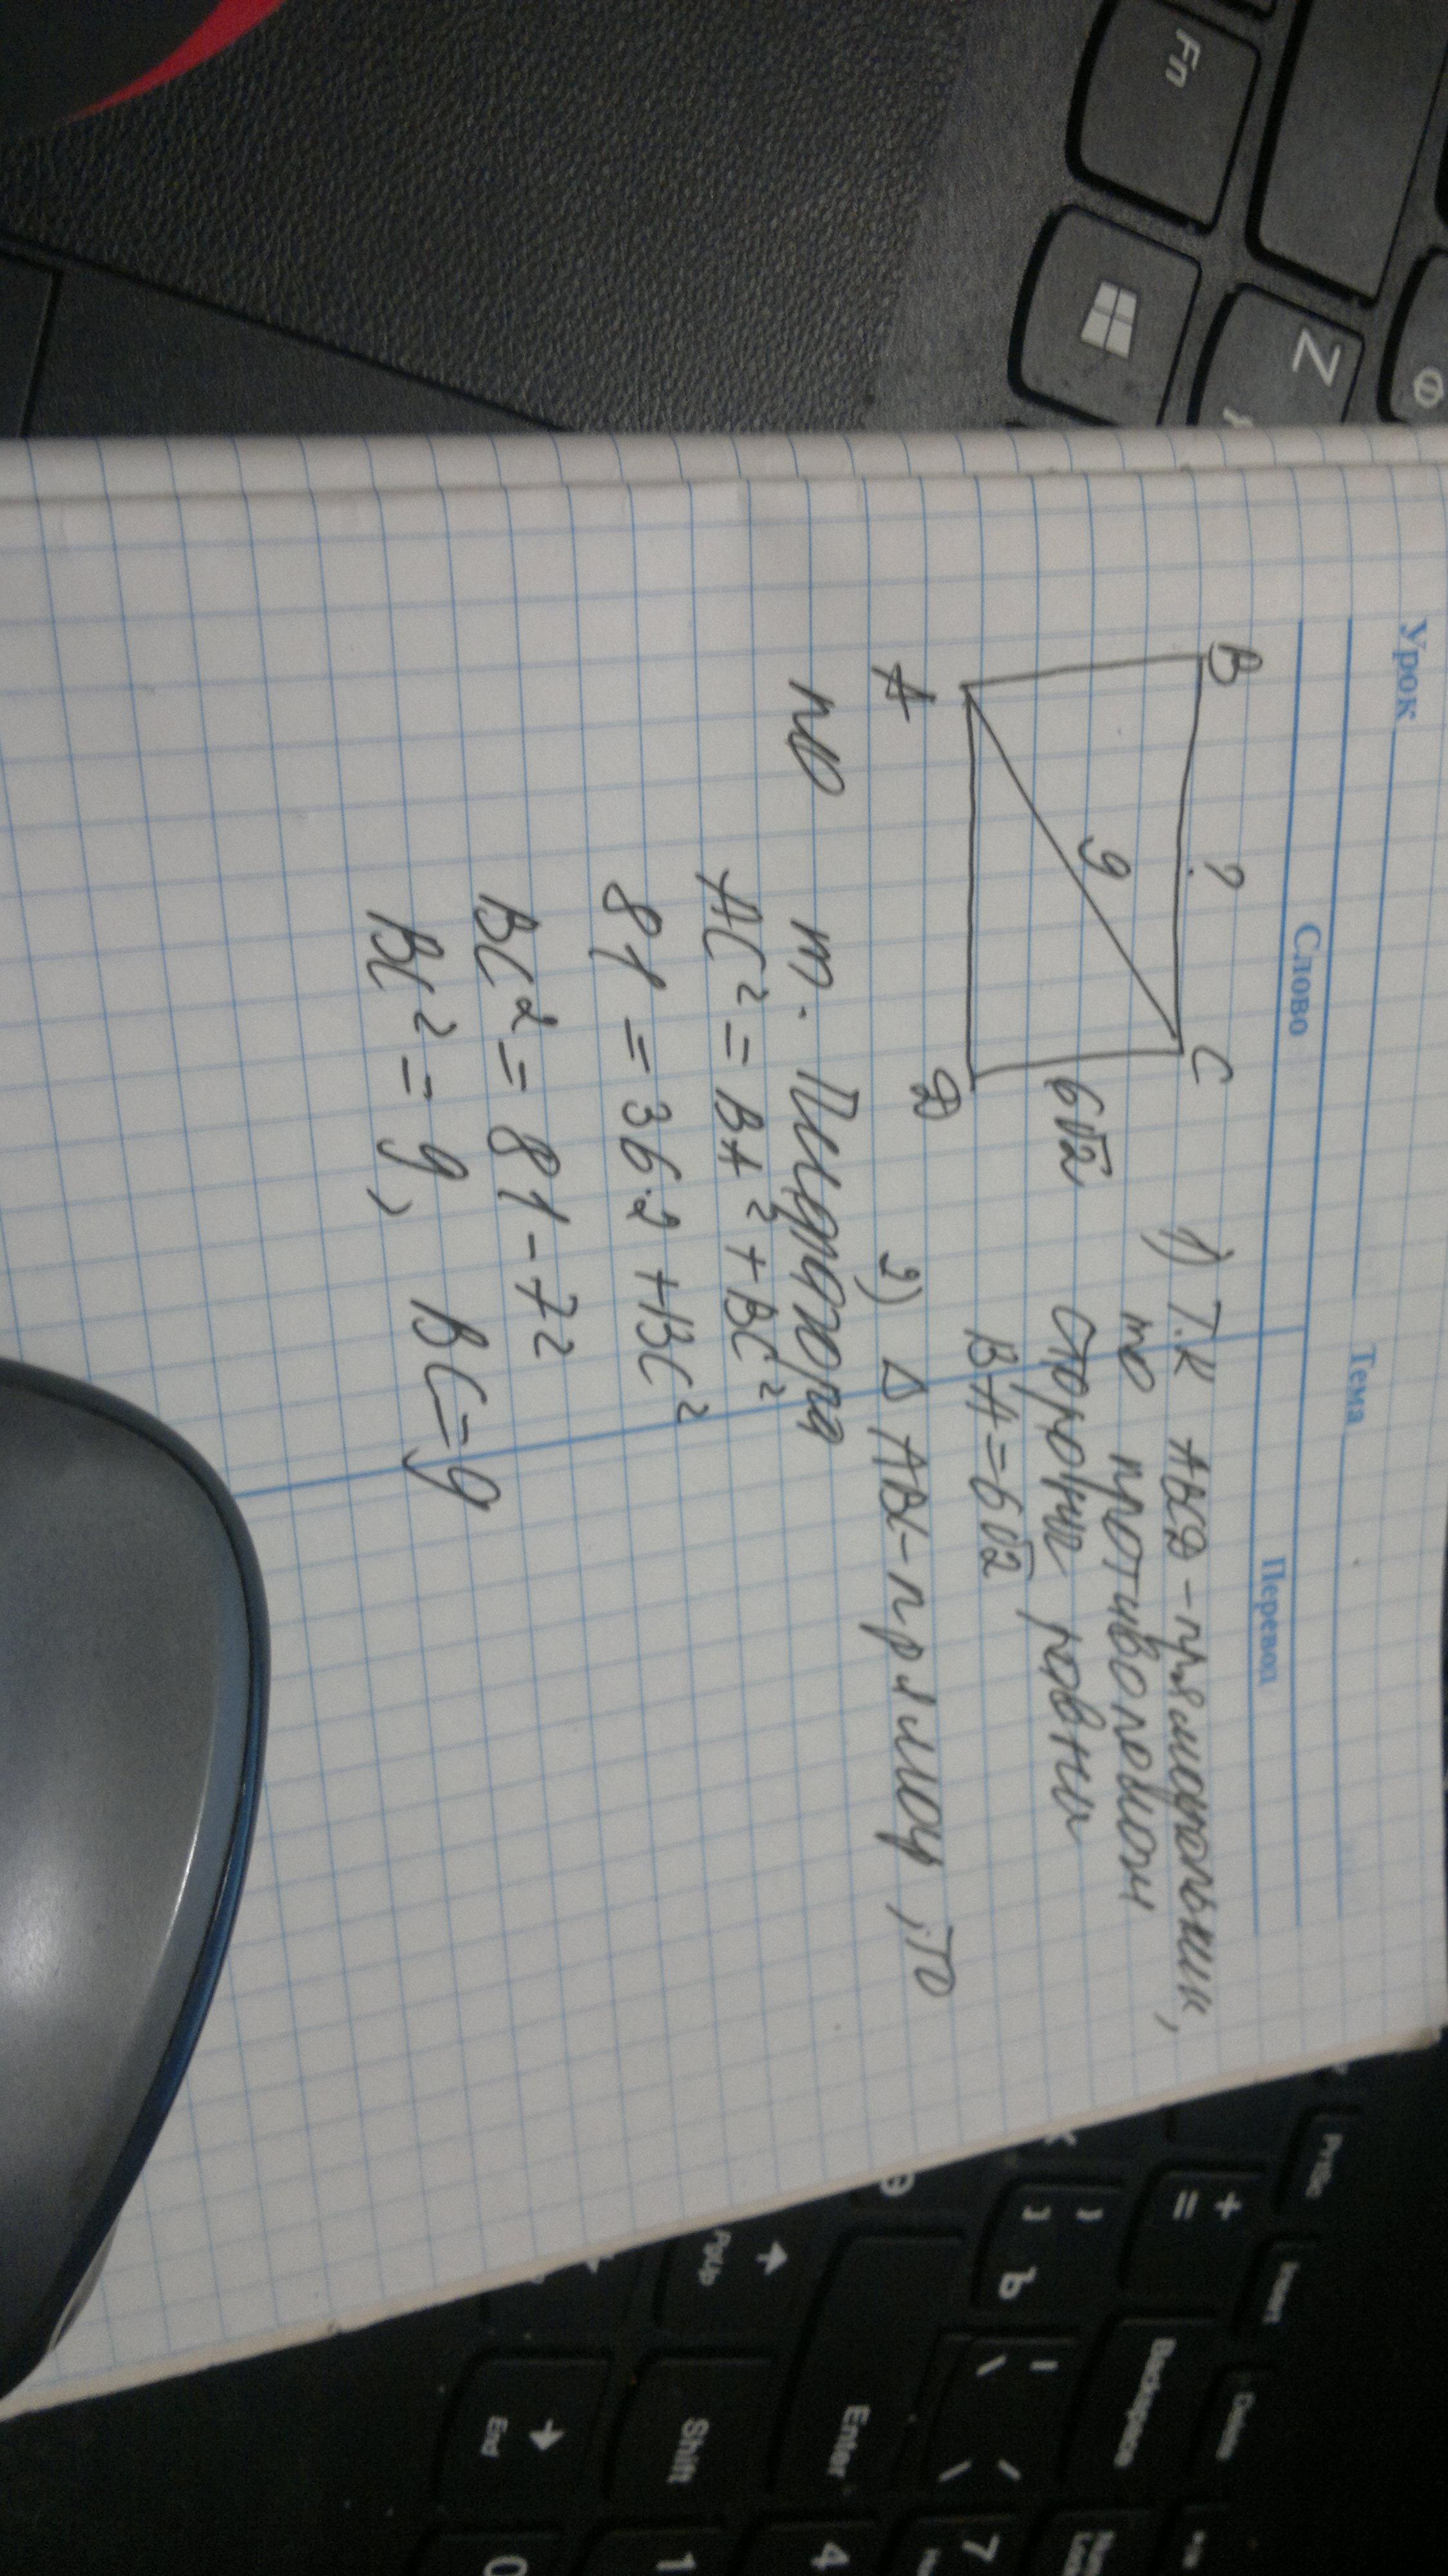 Урок
Тема
Слово
Перевод
B ? C
9
6√2
A D
1) Т.к ABCD - прямоугольник,
то противополож
стороны равны
BA = 6√2
2) Δ ABC - прямоуг, то
по т. Пифагора
AC² = BA² + BC²
81 = 36·2 + BC²
BC² = 81 - 72
BC² = 9, BC = 9
Fn
Z
Ф
PrtSc
Insert
Delete
+
=
Backspace
Ъ
Enter
Shift
PgUp
End
7
4
1
0